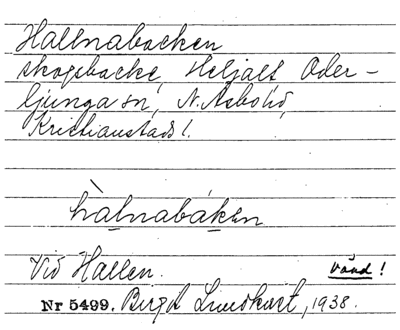 Hallnabacken
skogsbacke, Heljalt Oder-
ljunga sn, N. Åsbo hd,
Kristianstads l.
hàlnabáken
Vid Hallen.
vänd!
Nr 5499. Birgit Lundkvist, 1938.